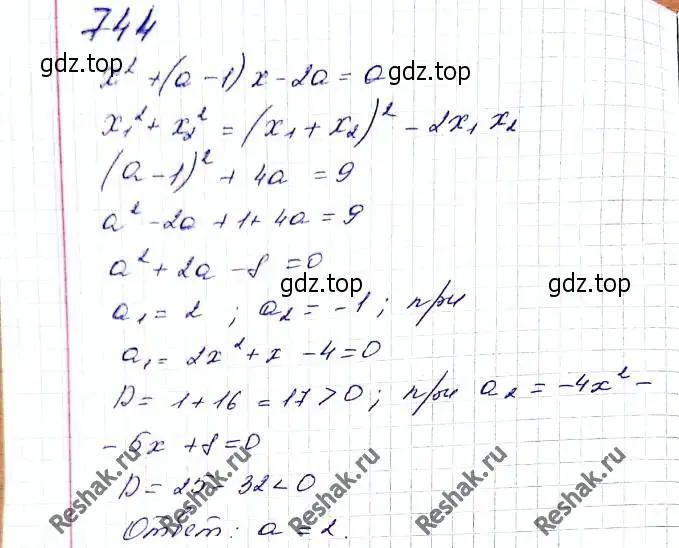 744
gdz.top gdz.top
x² + (a - 1)x - 2a = a
x₁² + x₂² = (x₁ + x₂)² - 2x₁ x₂
(a - 1)² + 4a = 9
a² - 2a + 1 + 4a = 9
a² + 2a - 8 = 0
gdz.top gdz.top
a₁ = 2 ; a₂ = -1 ; при
a₁ = 2x² + x - 4 = 0
D = 1 + 16 = 17 > 0 ; при a₂ = -4x² -
- 5x + 8 = 0
D = 25 - 32 < 0
Ответ: a = 2.
Reshak.ru Reshak.ru Reshak.ru Reshak.ru